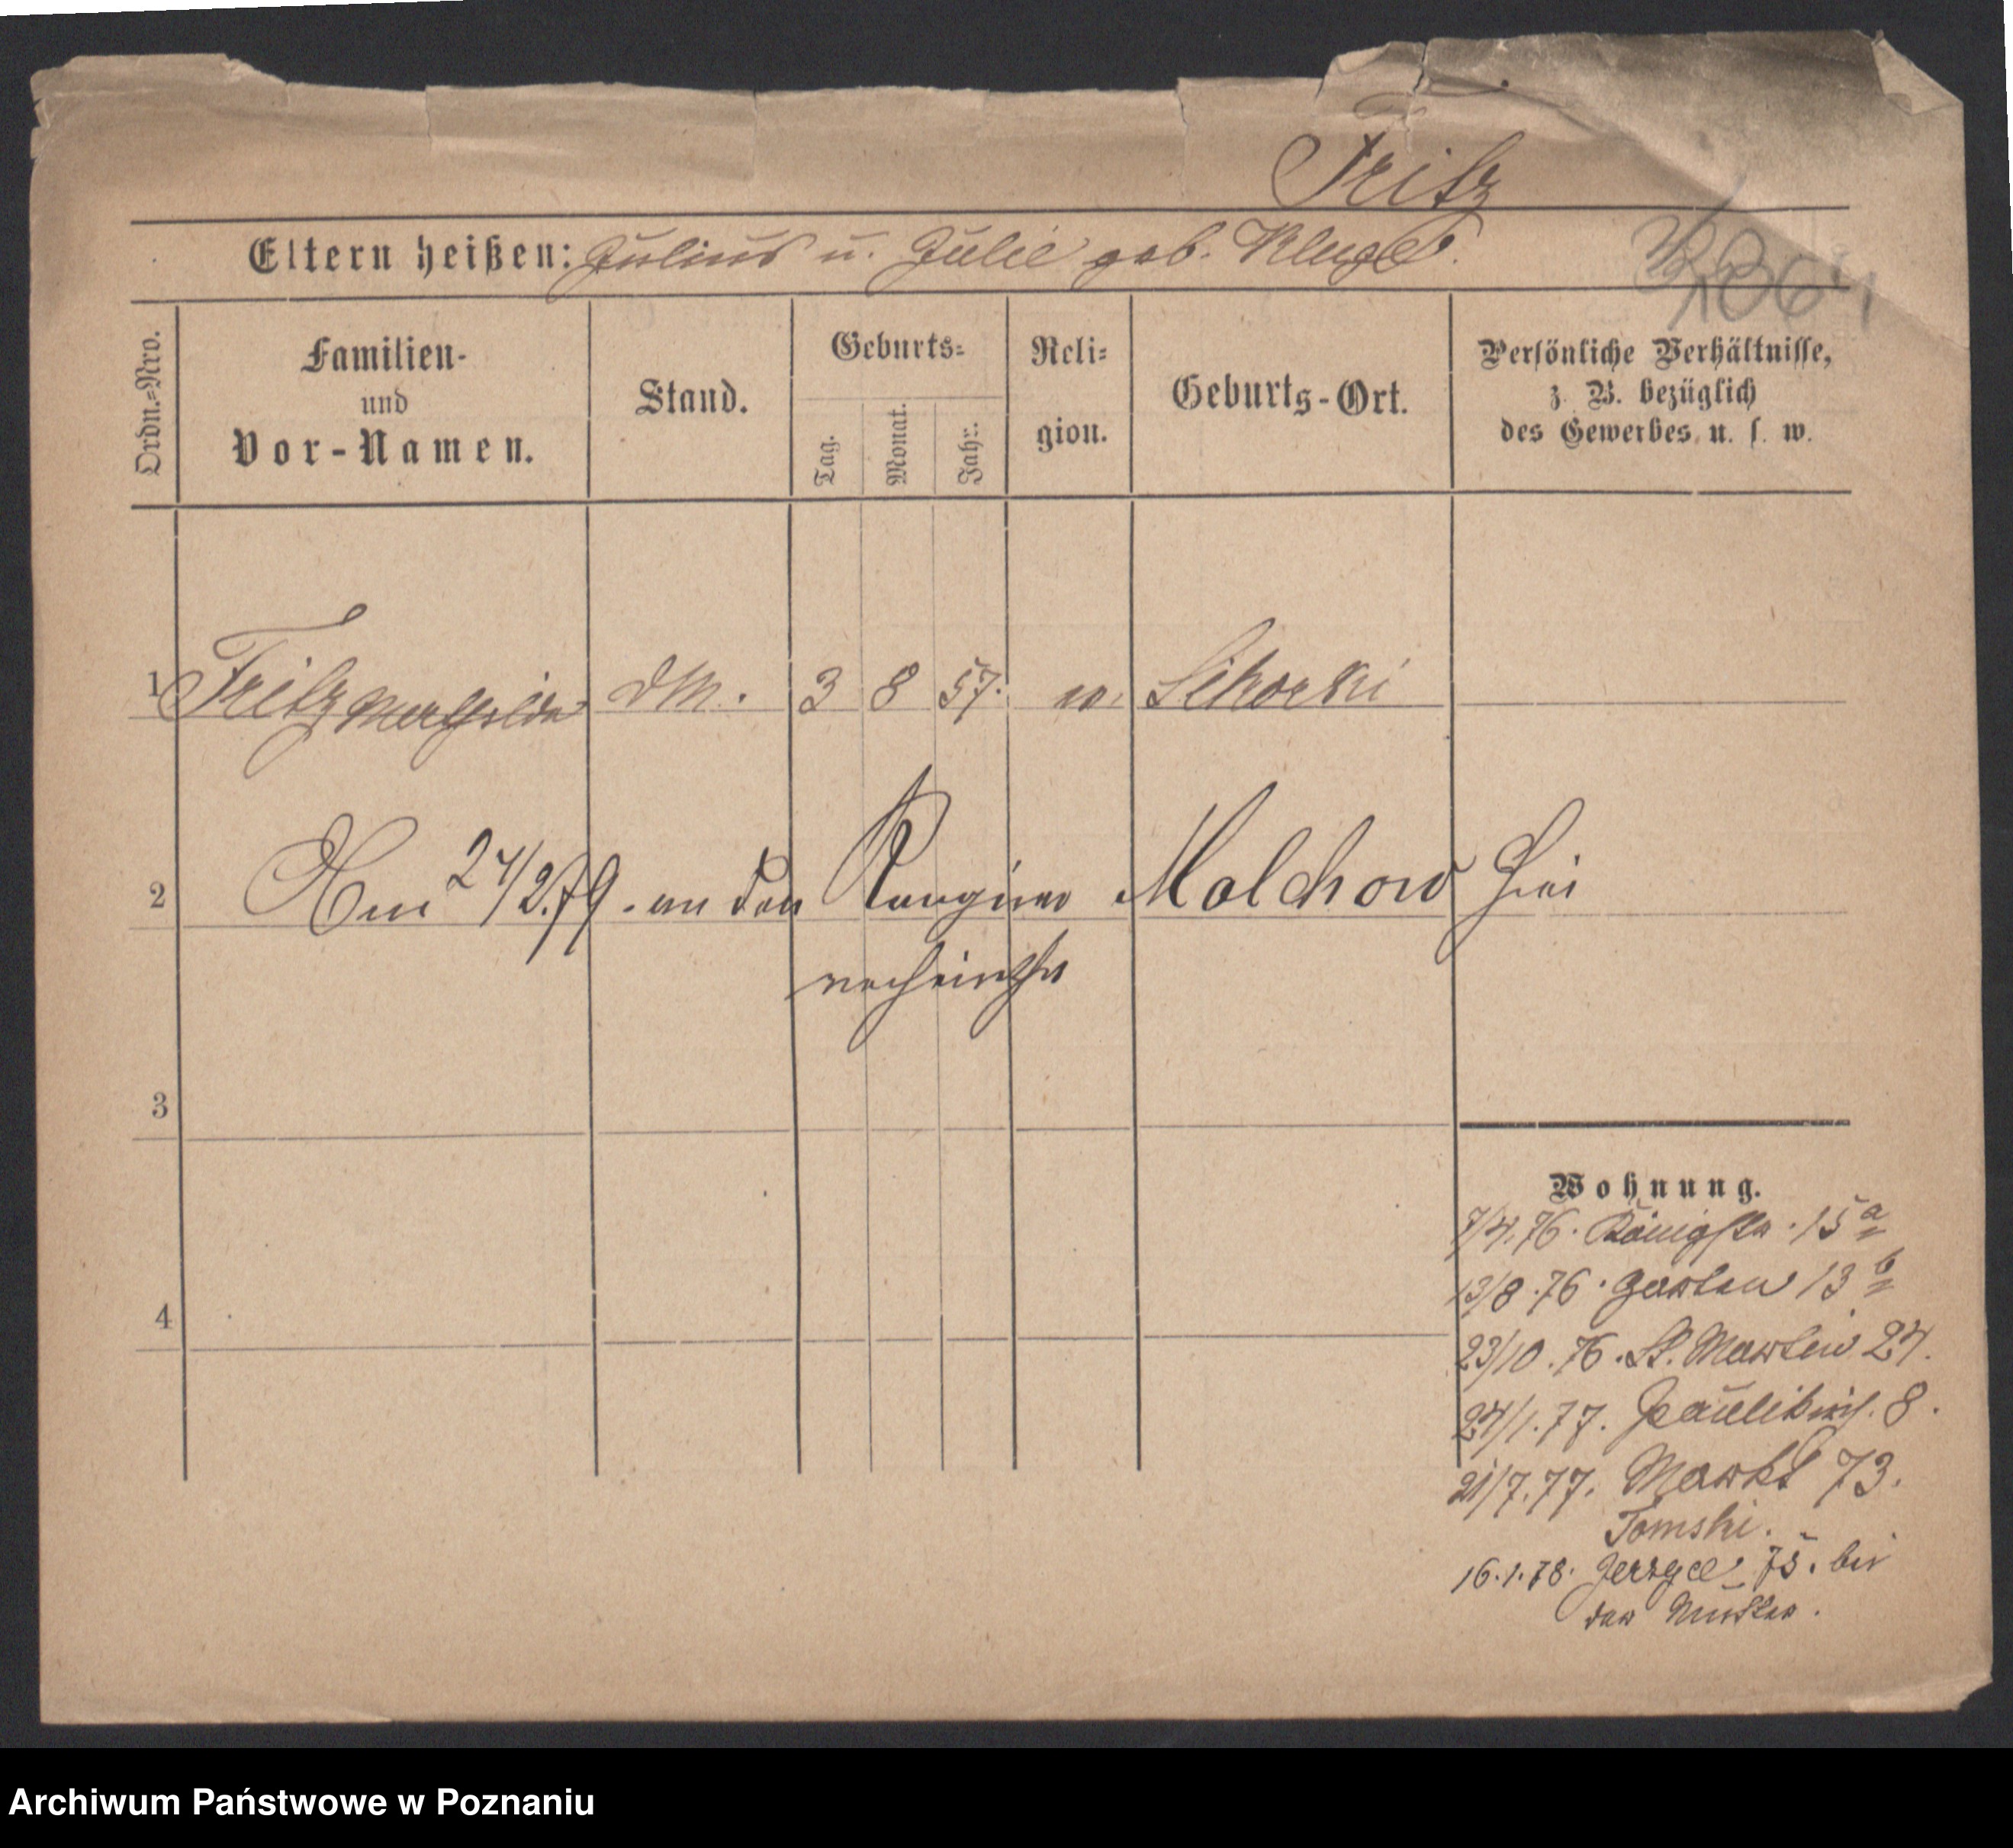 Fritz
Eltern heißen: Julius u. Julie geb. Kluge.
Ordn.-Nro.
Familien-
und
Vor-Namen.
Stand.
Geburts-
Tag.
Monat.
Jahr.
Reli-
gion.
Geburts-Ort.
Persönliche Verhältnisse,
z. B. bezüglich
des Gewerbes u. s. w.
1 Fritz DM. 3 8 57. Sikorski
2 Am 24/2.79. an den Malchow hier
verheirathet
3
4
Wohnung.
7/4.76. Königstr. 15a
13/8.76. Garten 13b
23/10.76. St. Martin 24.
24/1.77. Paulikirch. 8.
21/7.77. Markt 73.
Tomski.
16.1.78. Jerzyce 75. bei
der Mutter.
Archiwum Państwowe w Poznaniu